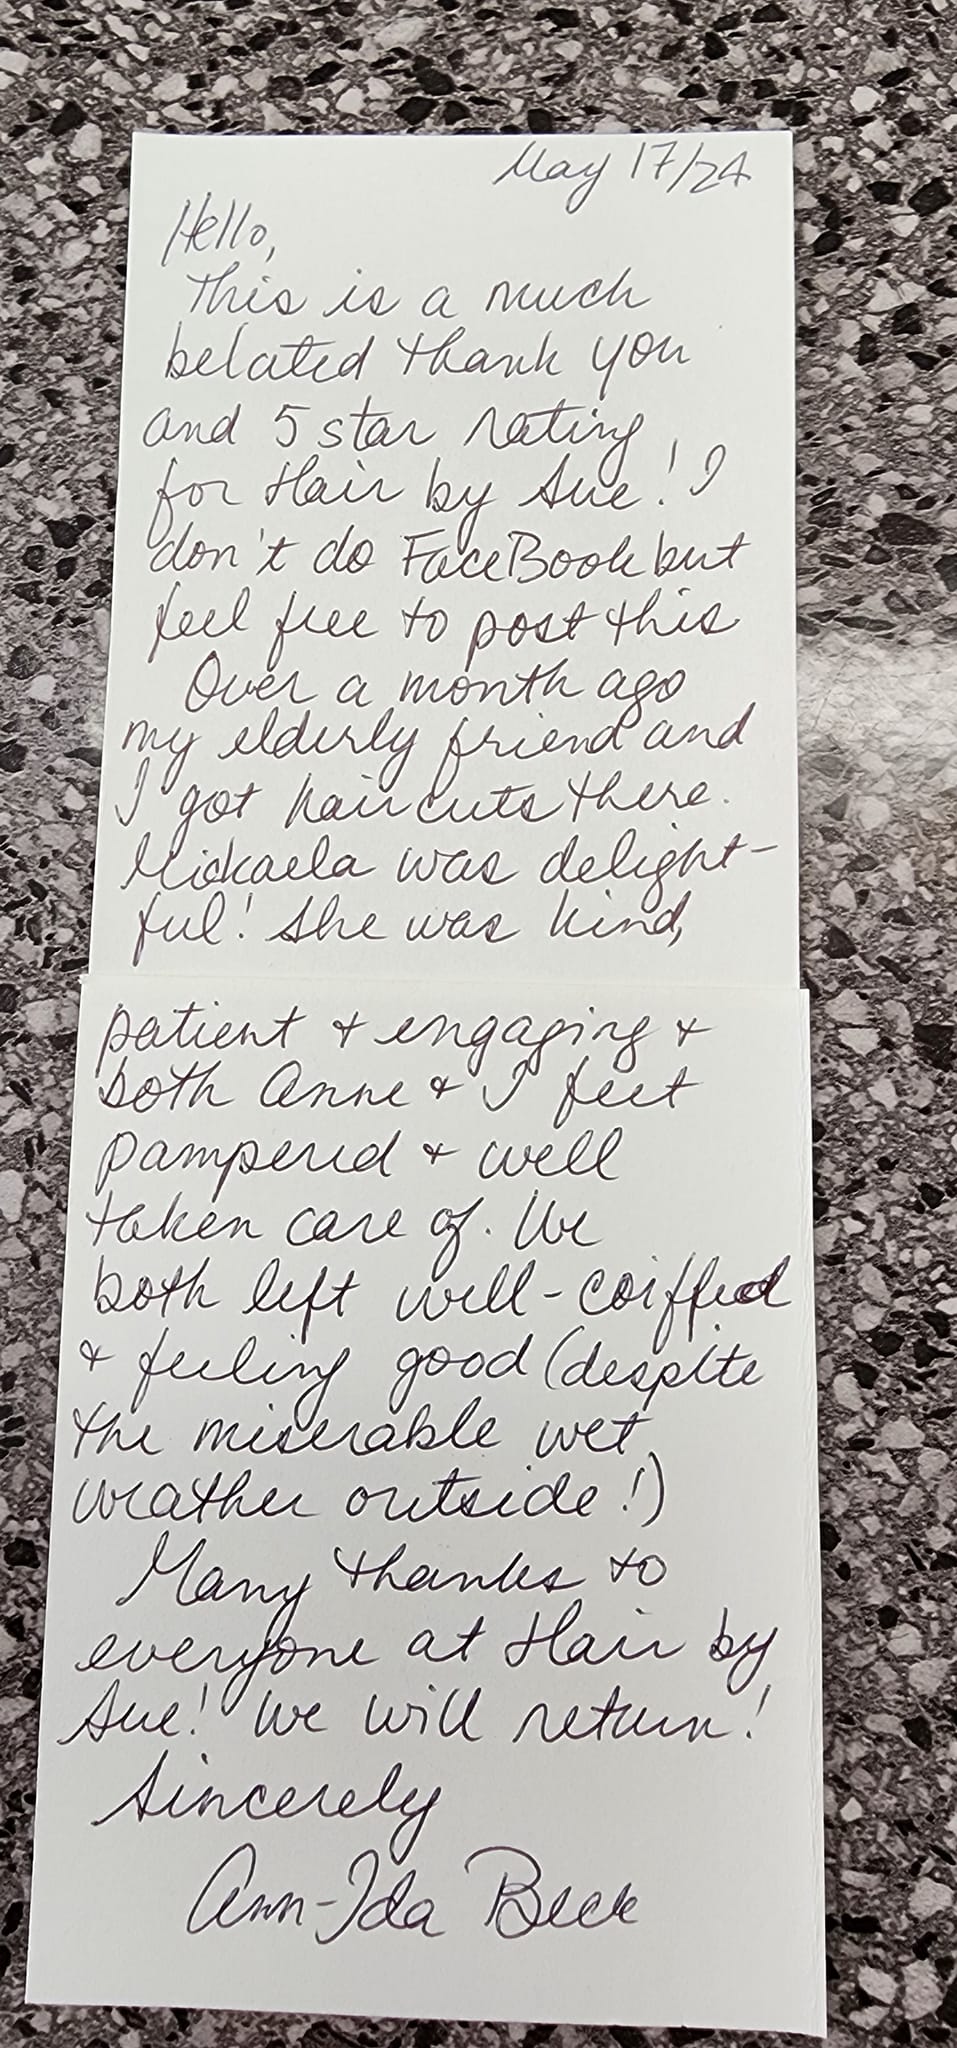 May 17/24
Hello,
This is a much
belated thank you
and 5 star rating
for Hair by Sue! I
don't do FaceBook but
feel free to post this
Over a month ago
my elderly friend and
I got haircuts there.
Mickaela was delight-
ful! She was kind,
patient & engaging &
both Anne & I felt
pampered & well
taken care of. We
both left well-coiffed
& feeling good (despite
the miserable wet
weather outside!)
Many thanks to
everyone at Hair by
Sue! We will return!
Sincerely
Ann-Ida Beck